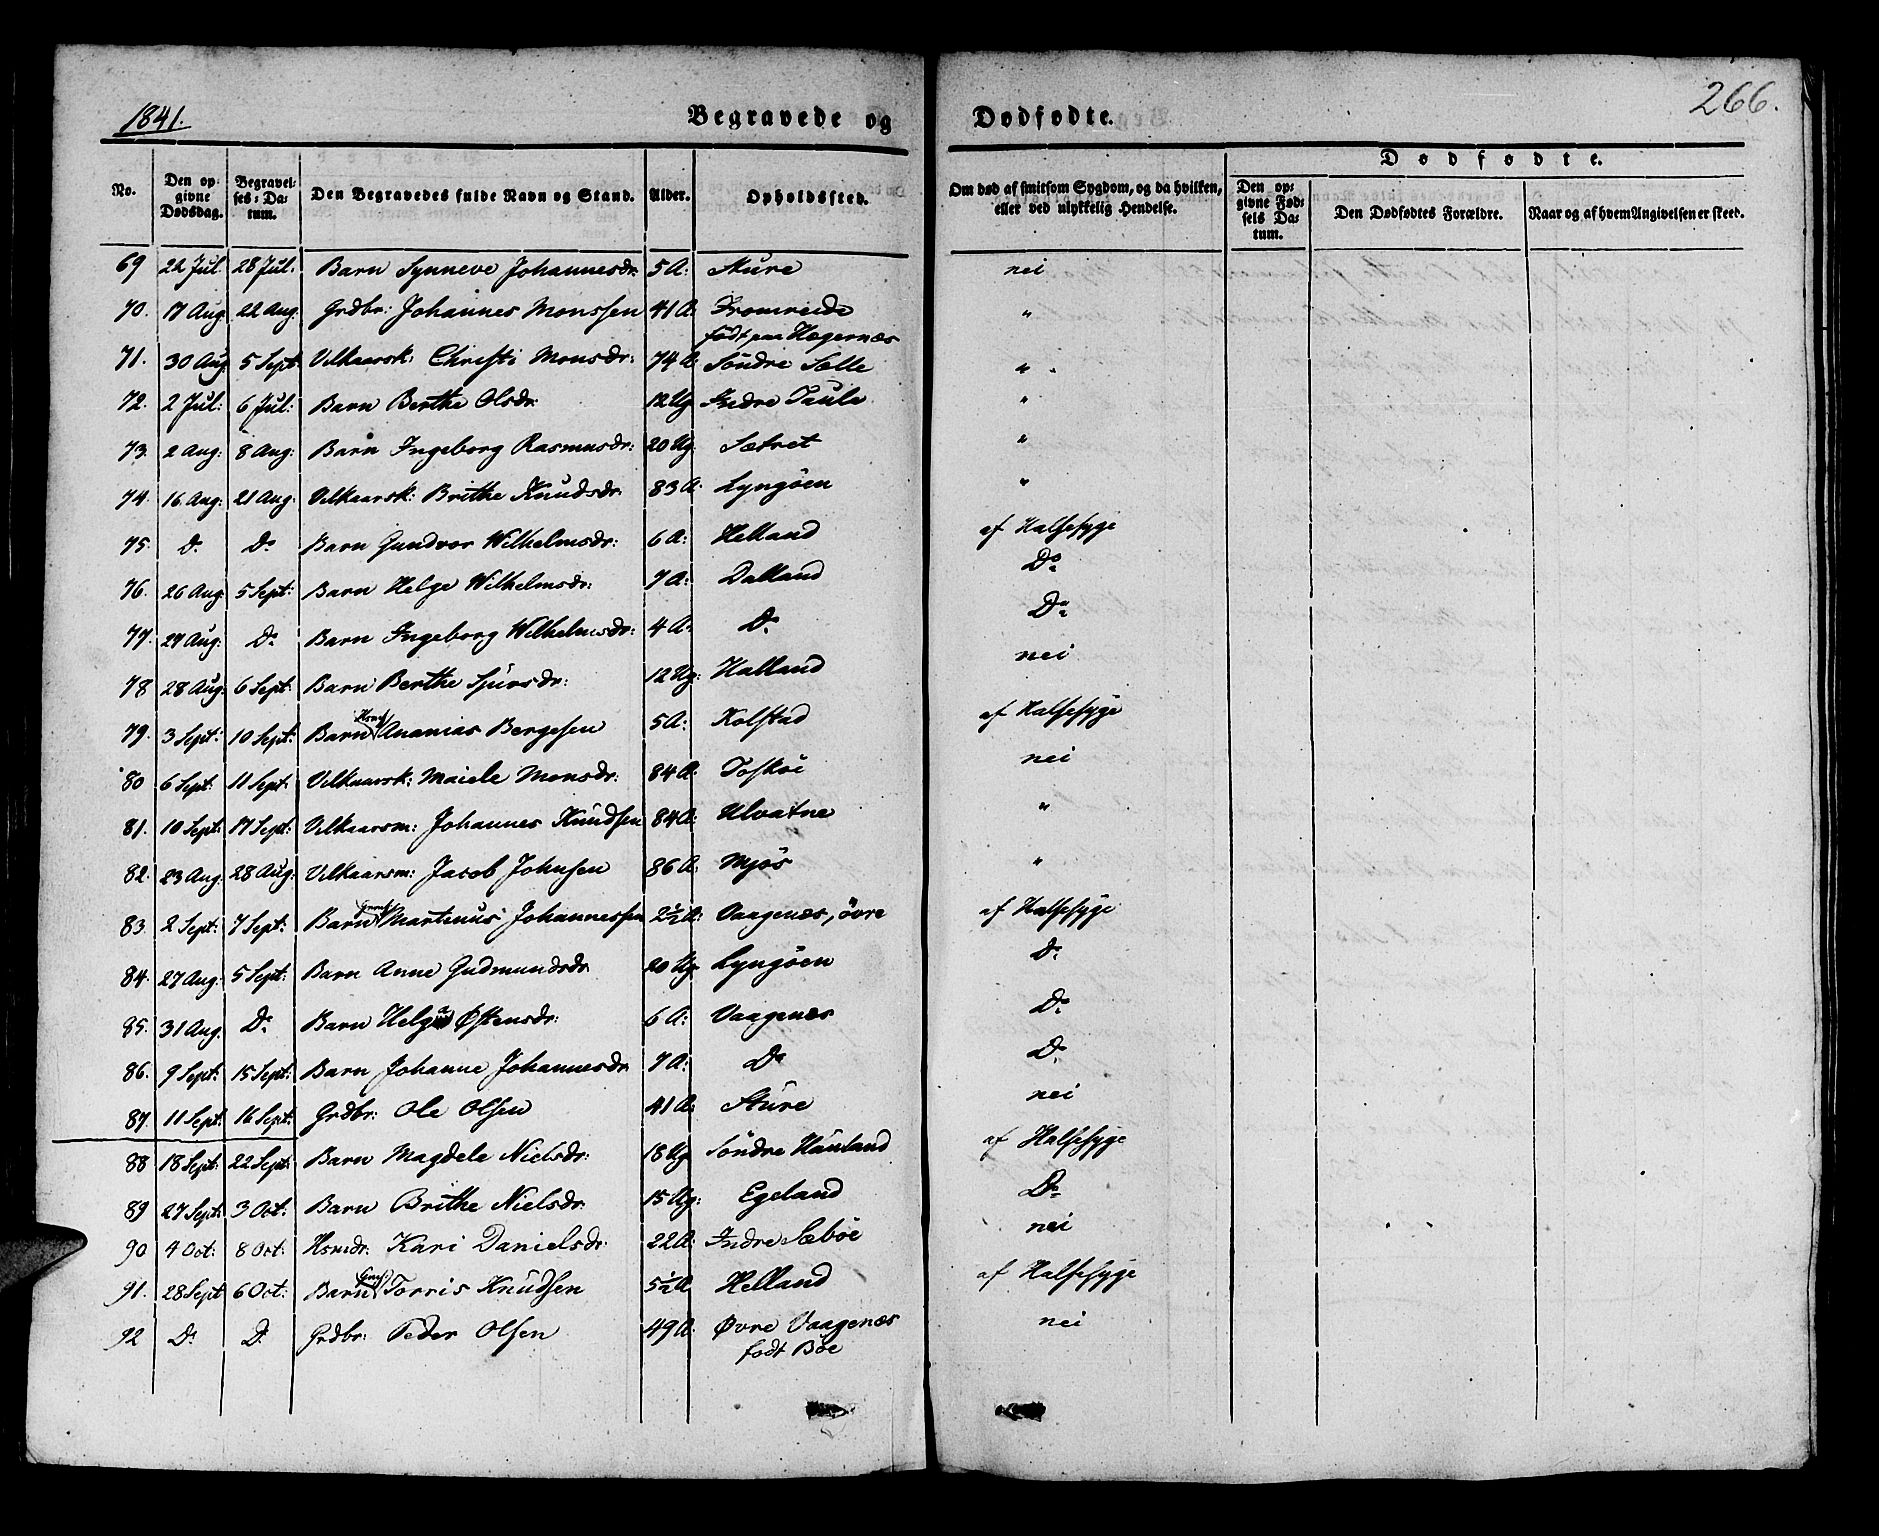 1841.
Begravede og Dødfødte.
266.
No.
Den opgivne Dødsdag.
Begravelses-Datum.
Den Begravedes fulde Navn og Stand.
Alder.
Opholdssted.
Om død af smitsom Sygdom, og da hvilken, eller ved ulykkelig Hendelse.
Dødfødte.
Den opgivne Fødsels Datum.
Den Dødfødtes Forældre.
Naar og af hvem Angivelsen er skeed.
69 22 Jul. 28 Jul. Barn Synneve Johannesdr. 5 A: Sture nei
70. 17 Aug 22 Aug. Grdbr: Johannes Monssen 41 A: Fromreide "
født paa Hagernæs
71. 30 Aug 5 Sept Vilkaarsk: Christi Monsdr: 74 A: Søndre Sælle "
72. 2 Jul: 6 Jul: Barn Berthe Olsdr. 12 Ug Indre Taule "
73. 2 Aug: 8 Aug: Barn Ingeborg Rasmusdr: 20 Ug. Sætret "
74. 16 Aug: 21 Aug: Vilkaarsk: Brithe Knudsdr. 83 A: Lyngøen "
75. D. Do Barn Gundvor Wilhelmsdr: 6 A: Helland af Halsesyge
76. 26 Aug 5 Sept: Barn Helge Wilhelmsdr: 7 A: Dalland Do
77. 29 Aug: Do Barn Ingeborg Wilhelmsdr: 4 A: Do Do
78 28 Aug: 6 Sept: Barn Berthe Sjursdr: 12 Ug: Halland nei
79. 3 Sept: 10 Sept: Barn Hsmds Ananias Bergesen 5 A: Kolstad af Halsesyge
80 6 Sept: 11 Sept: Vilkaarsk: Maiele Monsdr: 84 A: Toskøe nei
81. 10 Sept: 17 Sept: Vilkaarsm: Johannes Knudsen 84 A: Ulvatne "
82. 23 Aug: 28 Aug: Vilkaarsm: Jacob Johnsen 86 A: Mjøs "
83. 2 Sept: 7 Sept: Barn Martinus Johannessen 2½ A: Vaagenæs, øvre af Halsesyge
84. 27 Aug: 5 Sept: Barn Anne Gudmundsdr 20 Ug Lyngøen Do
85. 31 Aug. Do Barn Helga Østensdr: 6 A: Vaagenæs Do
86. 9 Sept: 15 Sept: Barn Johanne Johannesdr. 7 A: Do Do
87. 11 Sept: 16 Sept: Grdbr: Ole Olsen 41 A: Sture nei
88 18 Sept: 22 Sept: Barn Magdele Nielsdr: 18 Ug Søndre Hauland af Halsesyge
89 27 Sept: 3 Oct: Barn Brithe Nielsdr. 15 Ug: Egeland Do
90 4 Oct: 8 Oct: Hsmdr: Kari Danielsdr. 22 A: Indre Sæbøe nei
91. 28 Sept 6 Oct: Barn Torris Knudsen 5½ A Helland af Halsesyge
92 Do D. Grdbr: Peder Olsen 49 A: Øvre Vaagenæs nei
født Bøe